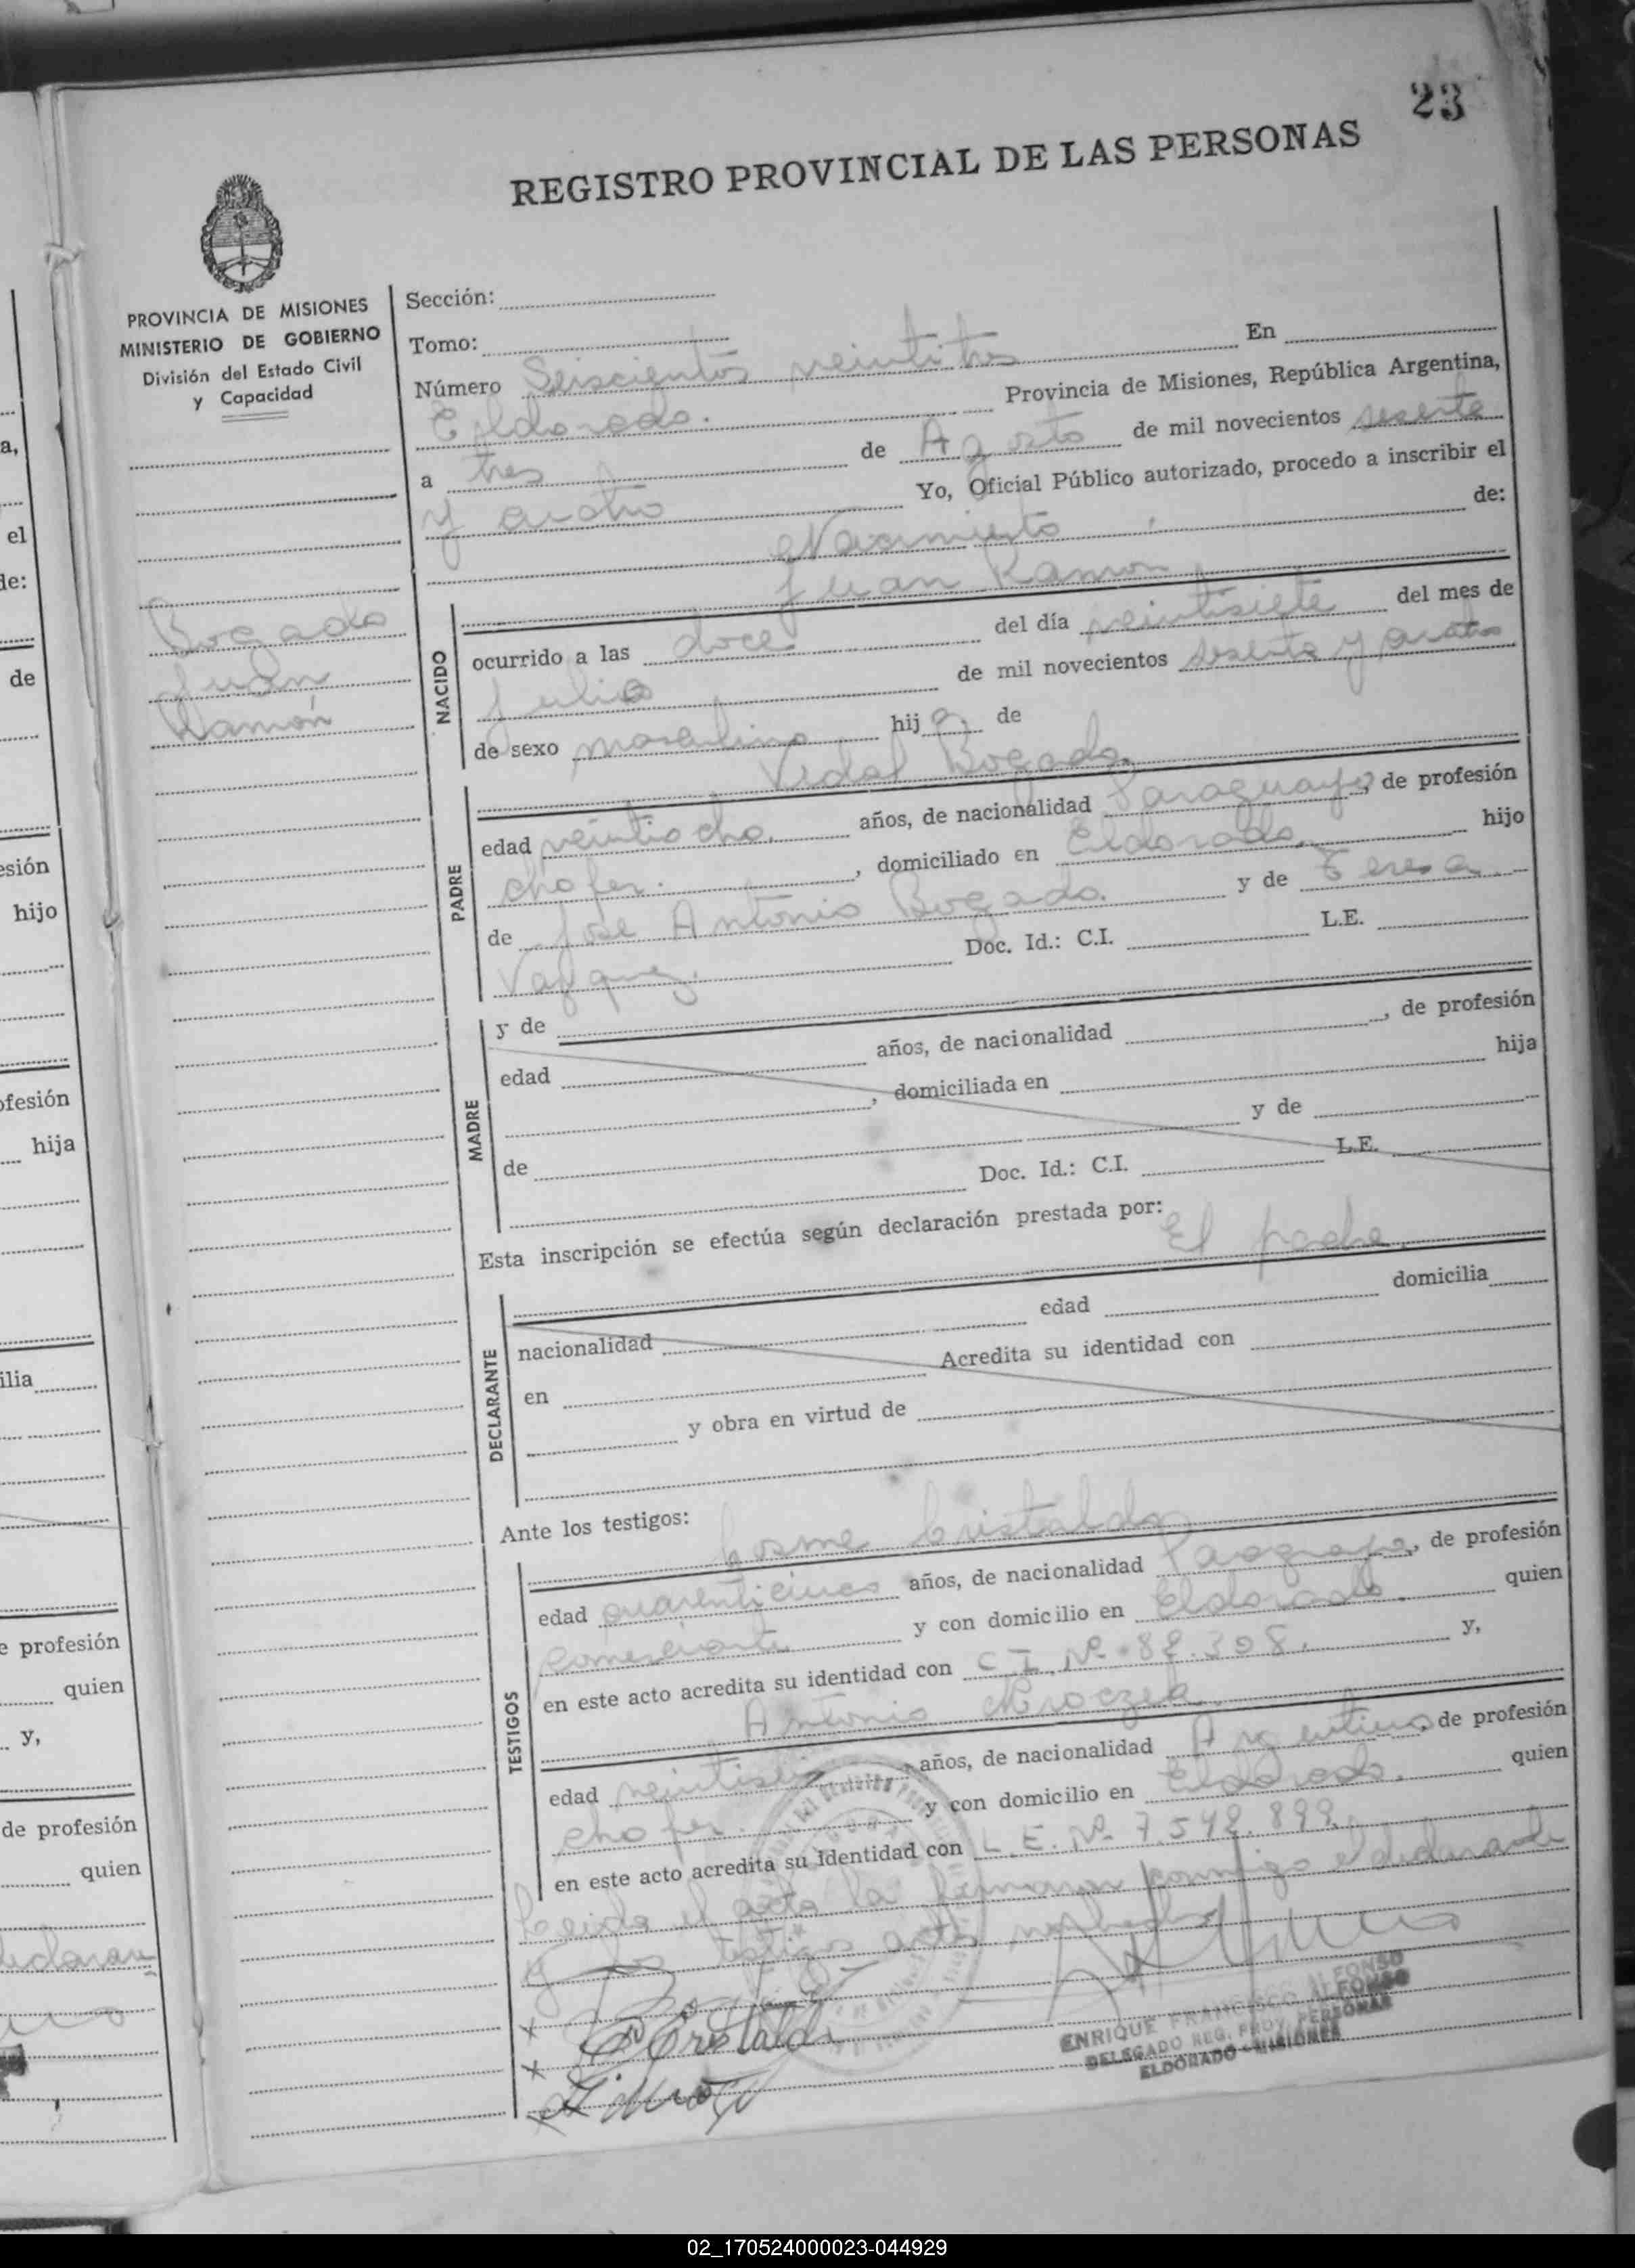 23
REGISTRO PROVINCIAL DE LAS PERSONAS
PROVINCIA DE MISIONES
MINISTERIO DE GOBIERNO
División del Estado Civil
y Capacidad
Bogado
Juan
Ramón
Sección:
Tomo:
Número Seiscientos veintitres En
Eldorado. Provincia de Misiones, República Argentina,
a tres de Agosto de mil novecientos sesenta
y cuatro Yo, Oficial Público autorizado, procedo a inscribir el
Nacimiento de:
Juan Ramon
NACIDO
ocurrido a las doce del día veintisiete del mes de
Julio de mil novecientos sesenta y cuatro
de sexo masculino hijo de
Vidal Bogado.
PADRE
edad veintiocho. años, de nacionalidad Paraguayo, de profesión
chofer. , domiciliado en Eldorado. hijo
de Jose Antonio Bogado. y de Teresa
Vazquez. Doc. Id.: C.I. L.E.
MADRE
y de
edad años, de nacionalidad , de profesión
, domiciliada en hija
de y de
Doc. Id.: C.I. L.E.
Esta inscripción se efectúa según declaración prestada por:
El padre.
DECLARANTE
edad domicilia
nacionalidad
en Acredita su identidad con
y obra en virtud de
Ante los testigos:
Cosme Cristaldo
TESTIGOS
edad cuarenticinco años, de nacionalidad Paraguayo, de profesión
Comerciante y con domicilio en Eldorado. quien
en este acto acredita su identidad con C.I. Nº 82.308. y,
Antonio Mroczek.
edad años, de nacionalidad Argentino, de profesión
chofer. y con domicilio en Eldorado. quien
en este acto acredita su identidad con L.E. Nº 7.542.899.
Leida el acta la firmaron conmigo el declarante
y los testigos
C Cristaldo
ENRIQUE FRANCISCO ALFONSO
DELEGADO REG. PROV. PERSONAS
ELDORADO - MISIONES
a,
el
de:
de
esión
hijo
ofesión
hija
ilia
e profesión
quien
y,
de profesión
quien
02_170524000023-044929